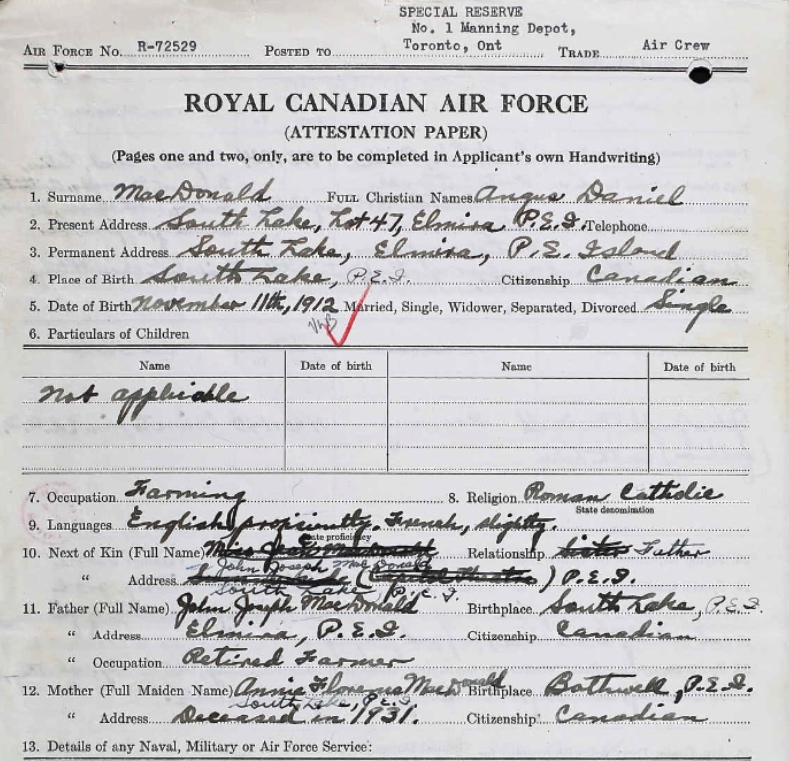 SPECIAL RESERVE
No. 1 Manning Depot,
AIR FORCE NO. R-72529 POSTED TO Toronto, Ont TRADE Air Crew
ROYAL CANADIAN AIR FORCE
(ATTESTATION PAPER)
(Pages one and two, only, are to be completed in Applicant's own Handwriting)
1. Surname MacDonald FULL Christian Names Angus Daniel
2. Present Address South Lake, Lot 47, Elmira P.E.I. Telephone
3. Permanent Address South Lake, Elmira, P.E. Island
4. Place of Birth South Lake, P.E.I. Citizenship Canadian
5. Date of Birth November 11th, 1912 Married, Single, Widower, Separated, Divorced Single
6. Particulars of Children
Name Date of birth Name Date of birth
Not applicable
7. Occupation Farming 8. Religion Roman Catholic
State denomination
9. Languages English, proficiently. French, slightly.
State proficiency
10. Next of Kin (Full Name) Miss MacDonald Relationship Sister Father
John Joseph MacDonald
" Address (Capitol Theatre) P.E.I.
South Lake, P.E.I.
11. Father (Full Name) John Joseph MacDonald Birthplace South Lake, P.E.I.
" Address Elmira, P.E.I. Citizenship Canadian
" Occupation Retired Farmer
12. Mother (Full Maiden Name) Annie Florence MacDonald Birthplace Bothwell, P.E.I.
South Lake, P.E.I.
" Address Deceased in 1931. Citizenship Canadian
13. Details of any Naval, Military or Air Force Service: